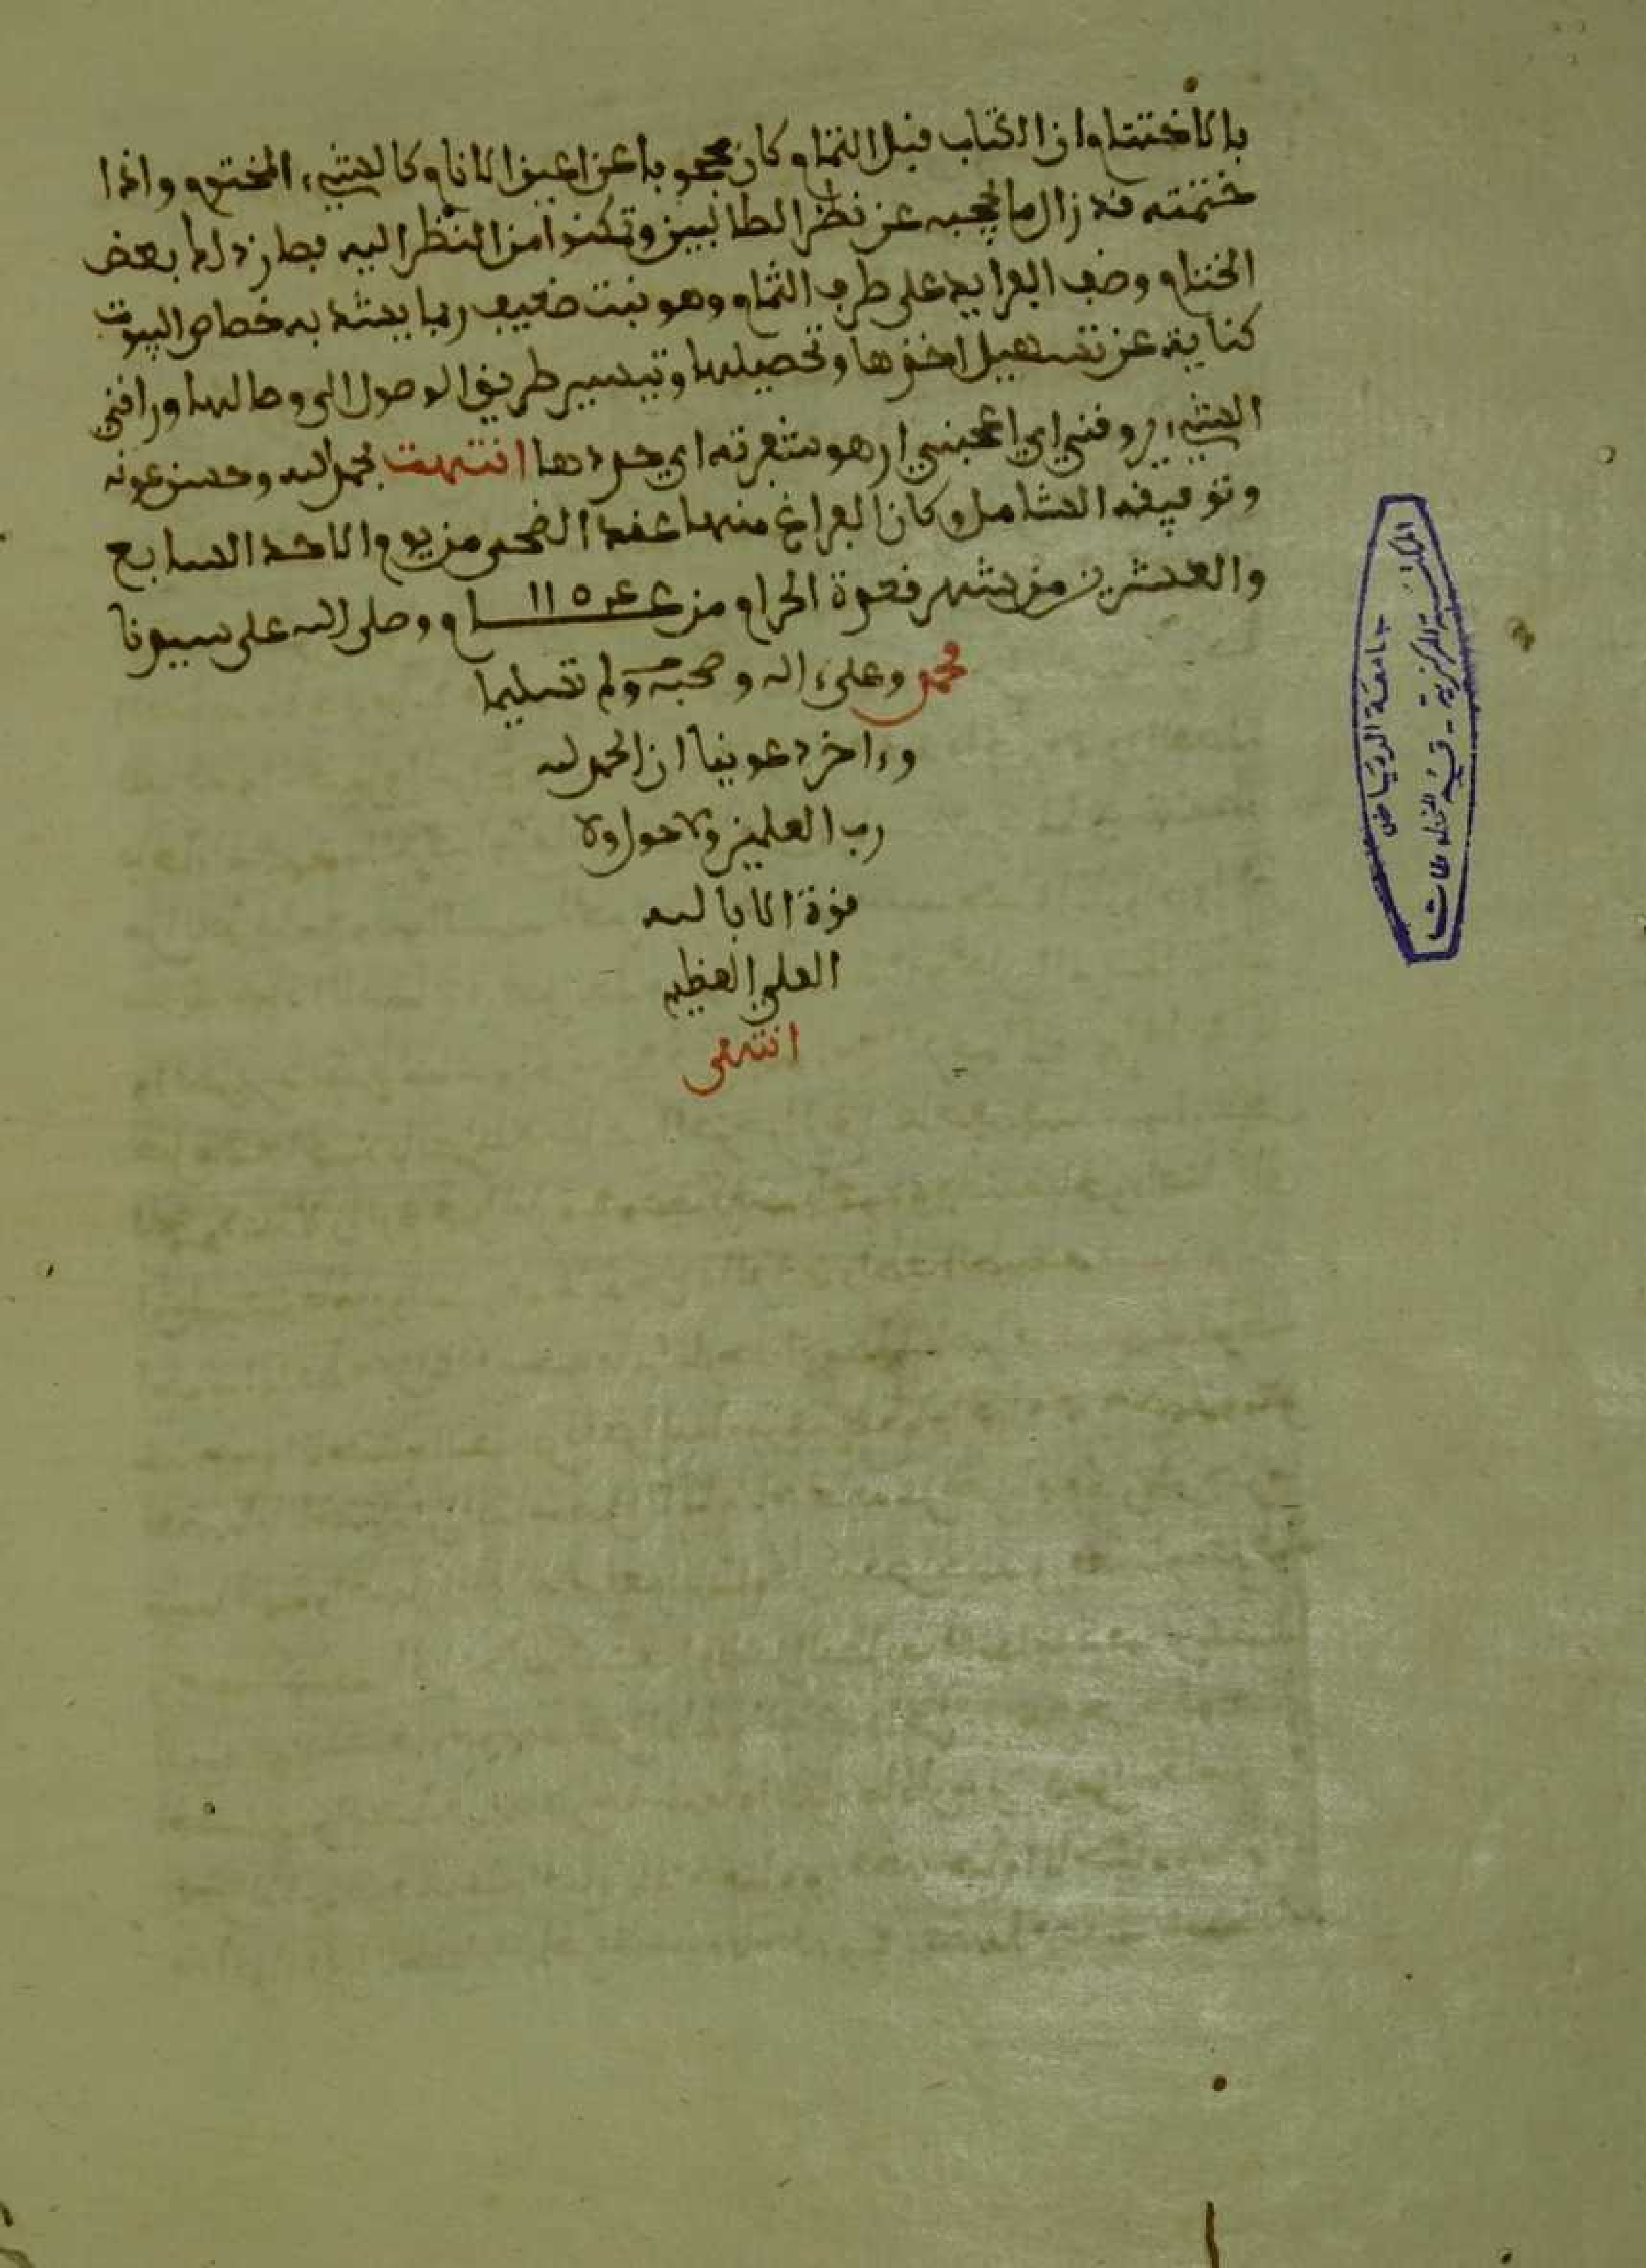 بالاختتام ان الكتاب قبل التمام كان محجوبا عن اعين الانام كالشيء المختوم واذا
ختمته فقد زال ما يحجبه عن نظر الطالبين وتمكنوا من النظر اليه فصار ذلك بعض
الختام وضع الفرايد على طرف الثمام وهو نبت ضعيف ربما يشد به خصاص البيوت
كناية عن تسهيل اخذها وتحصيلها وتيسير طريق الوصول الى وصالها وراقني
الشيء يروقني اي اعجبني ازهو شعرته اي جردها انتهت بحمد الله وحسن عونه
وتوفيقه الشامل وكان الفراغ منها عند الضحى من يوم الاحد السابع
والعشرين من شهر فعدة الحرام من عام وصلى الله على سيدنا
محمد وعلى ءاله وصحبه وسلم تسليما
وءاخر دعوينا ان الحمد لله
رب العلمين ولا حول ولا
قوة الا بالله
العلي العظيم
انتهى
جامعة الرياض
المكتبة المركزية - قسم المخطوطات